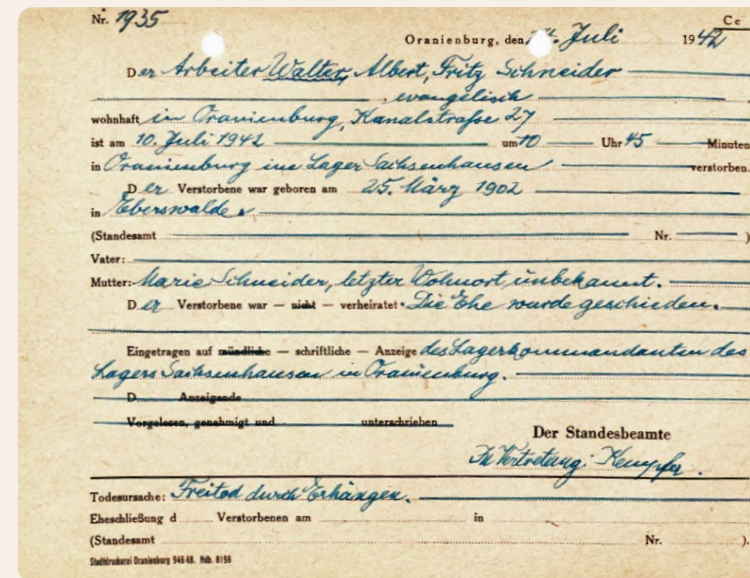 Nr. 1935
C
Oranienburg, den Juli 1942
Der Arbeiter Walter, Albert, Fritz Schneider
, evangelisch
wohnhaft in Oranienburg, Kanalstraße 27
ist am 10. Juli 1942 um 10 Uhr 45 Minuten
in Oranienburg im Lager Sachsenhausen verstorben.
Der Verstorbene war geboren am 25. März 1902
in Eberswalde.
(Standesamt Nr. )
Vater:
Mutter: Marie Schneider, letzter Wohnort unbekannt.
Der Verstorbene war — nicht — verheiratet. Die Ehe wurde geschieden.
Eingetragen auf mündliche — schriftliche — Anzeige des Lagerkommandanten des
Lagers Sachsenhausen in Oranienburg.
D Anzeigende
Vorgelesen, genehmigt und unterschrieben
Der Standesbeamte
In Vertretung:
Todesursache: Freitod durch Erhängen.
Eheschließung d Verstorbenen am in
(Standesamt Nr. ).
Stadtdruckerei Oranienburg